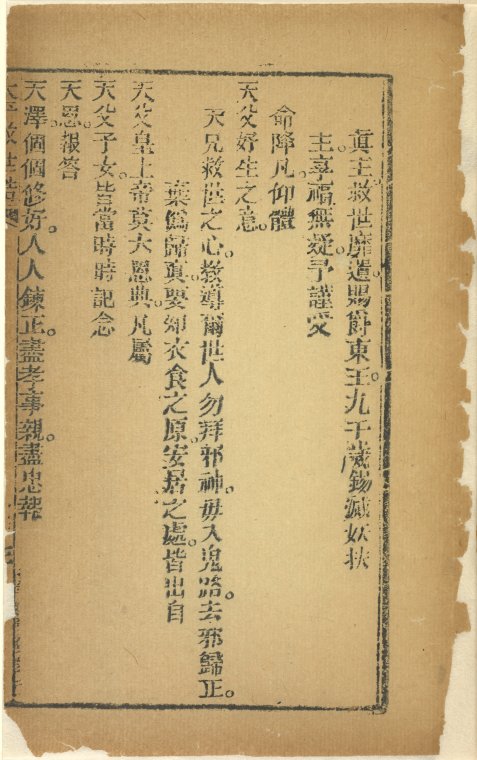 眞主救世靡遺賜爵東王九千歲錫滅妖扶
主享福無疑予謹受
命降凡仰體
天父好生之意
天兄救世之心教導爾世人勿拜邪神毋入鬼路去邪歸正
棄僞歸眞要知衣食之原安居之處皆出自
天父皇上帝莫大恩典凡屬
天父子女皆當時時記念
天恩報答
天澤個個修好人人鍊正盡孝事親盡忠報